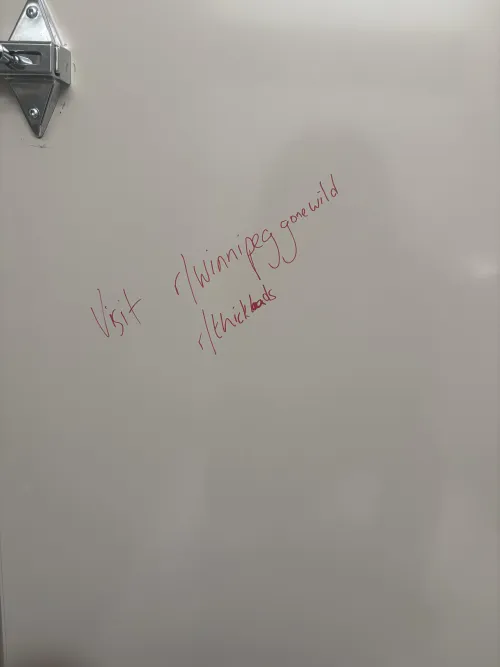 Visit r/winnipeggonewild
r/thickloads